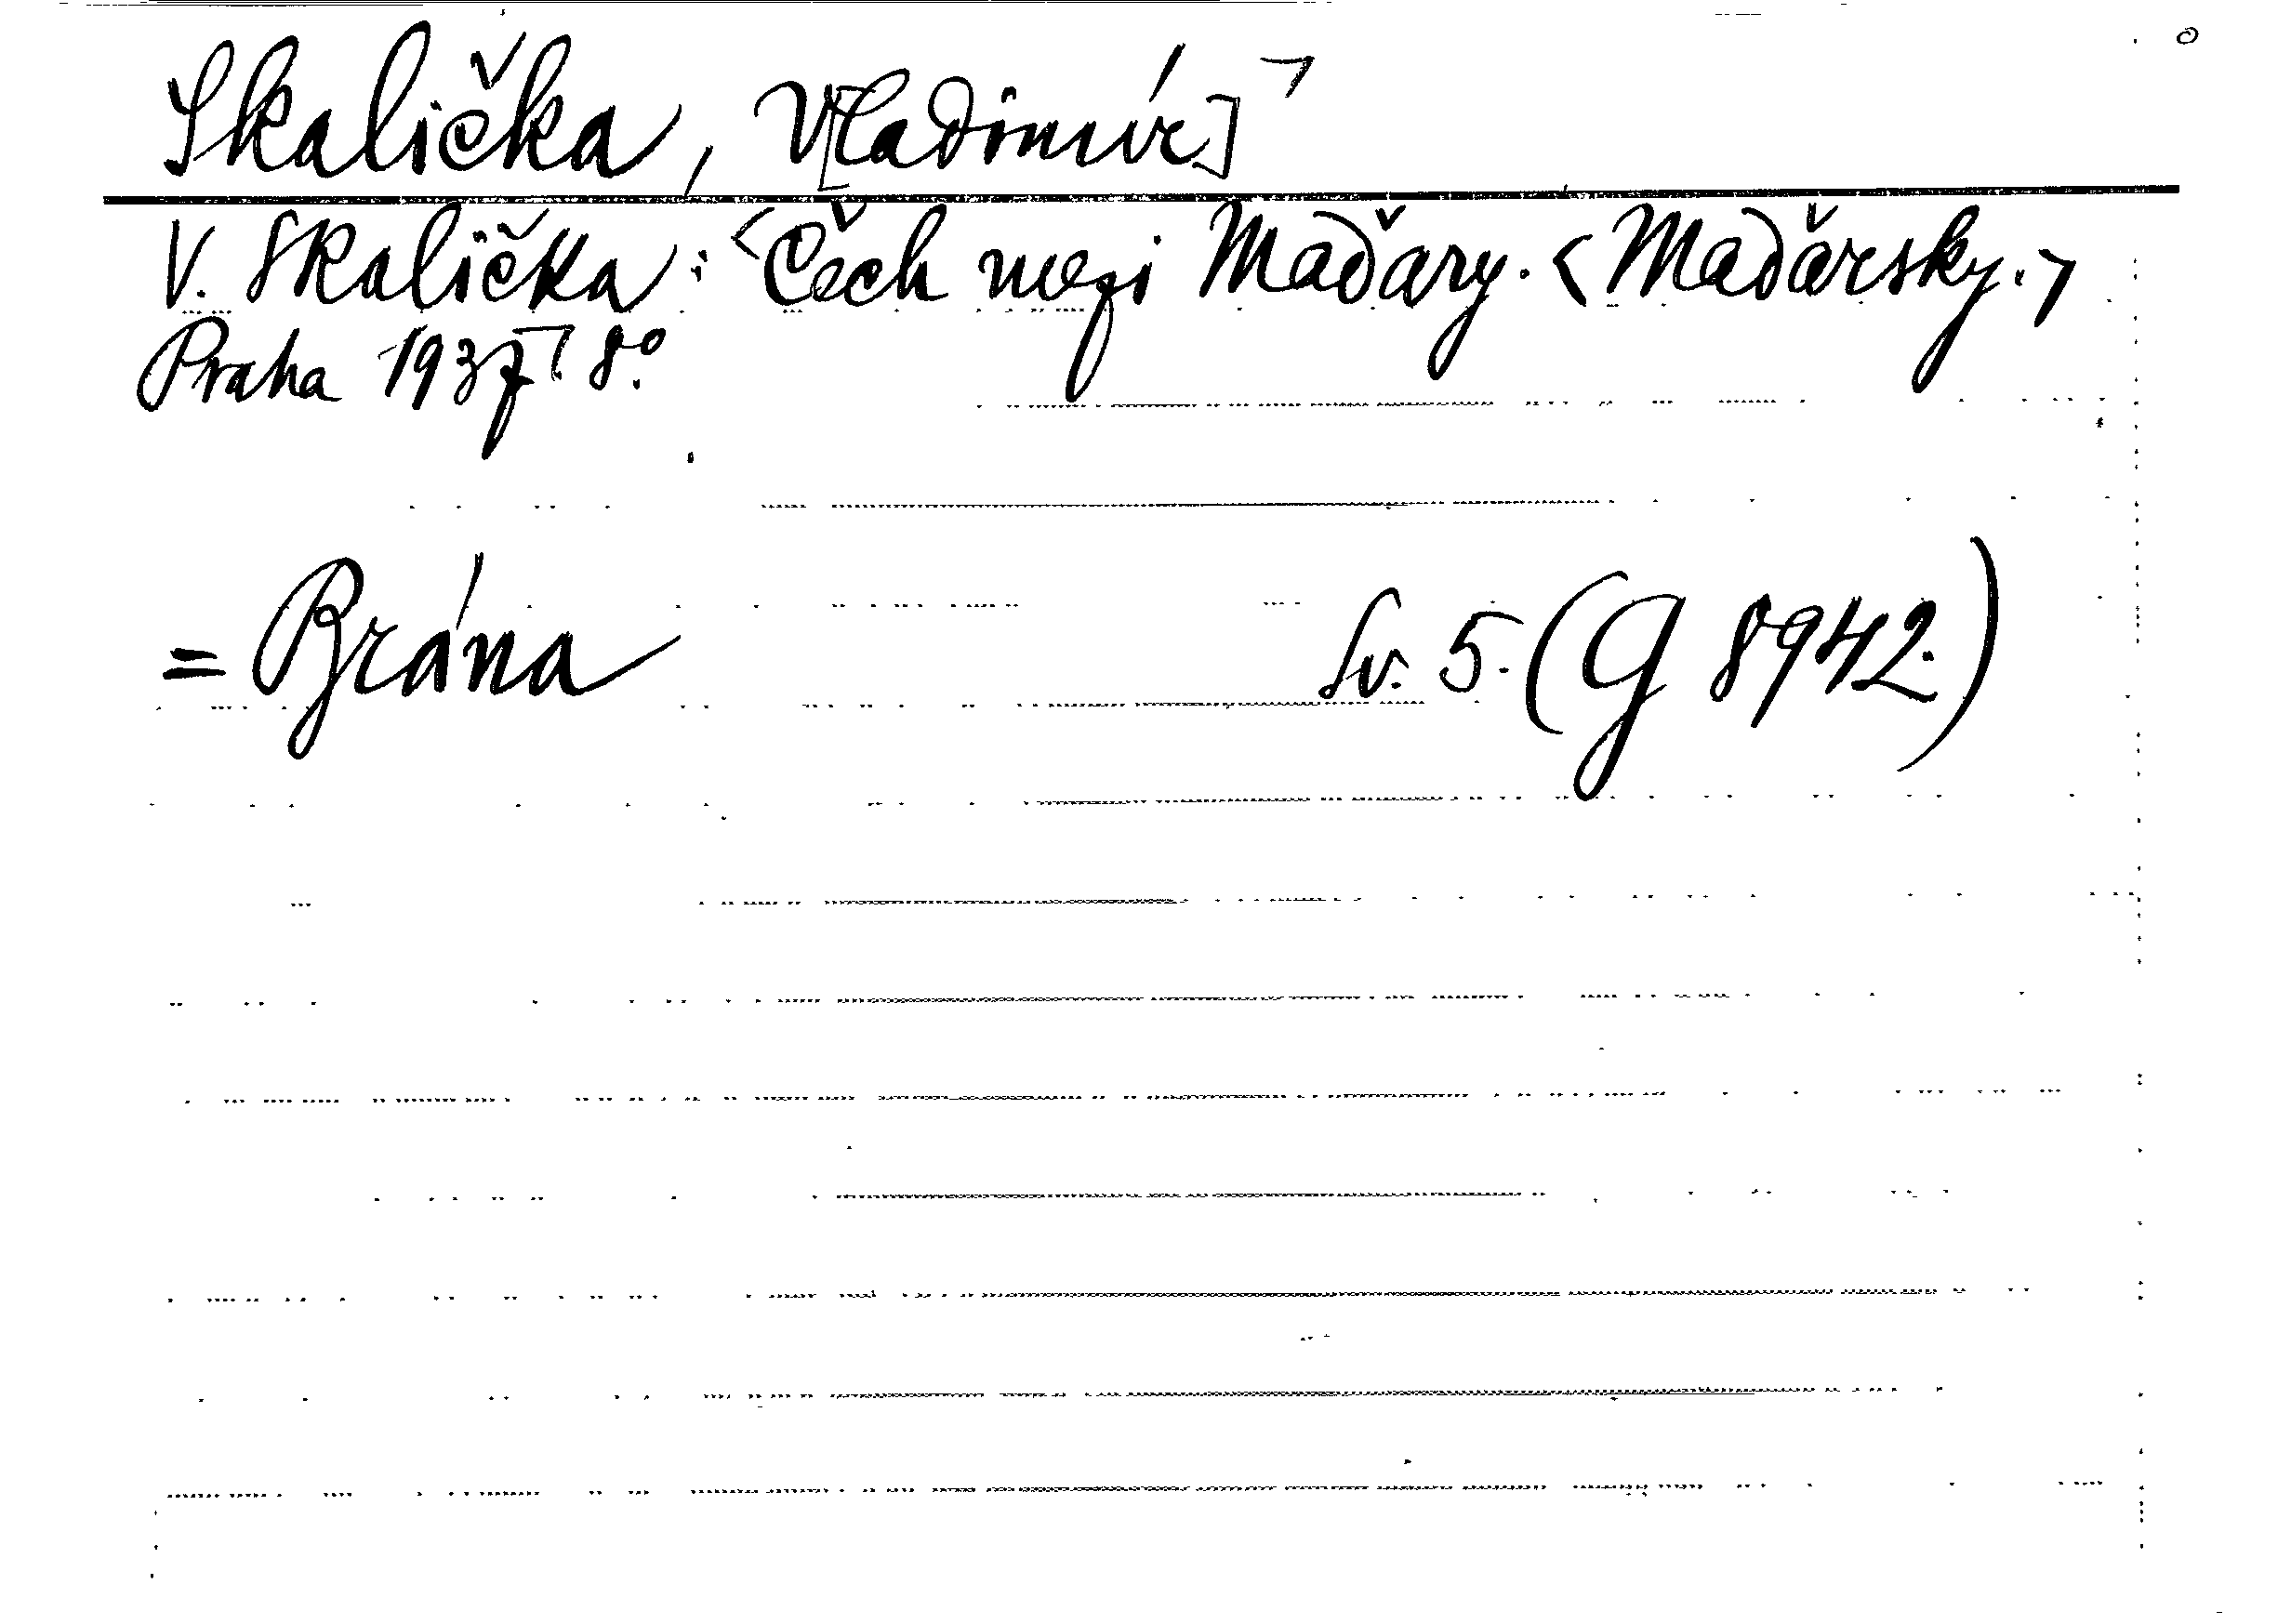 Skalička, V[ladimír]
V. Skalička: Čech mezi Maďary. <Maďarsky.>
Praha 1937. 8°.
= Brána Sv. 5. (G 8942.)